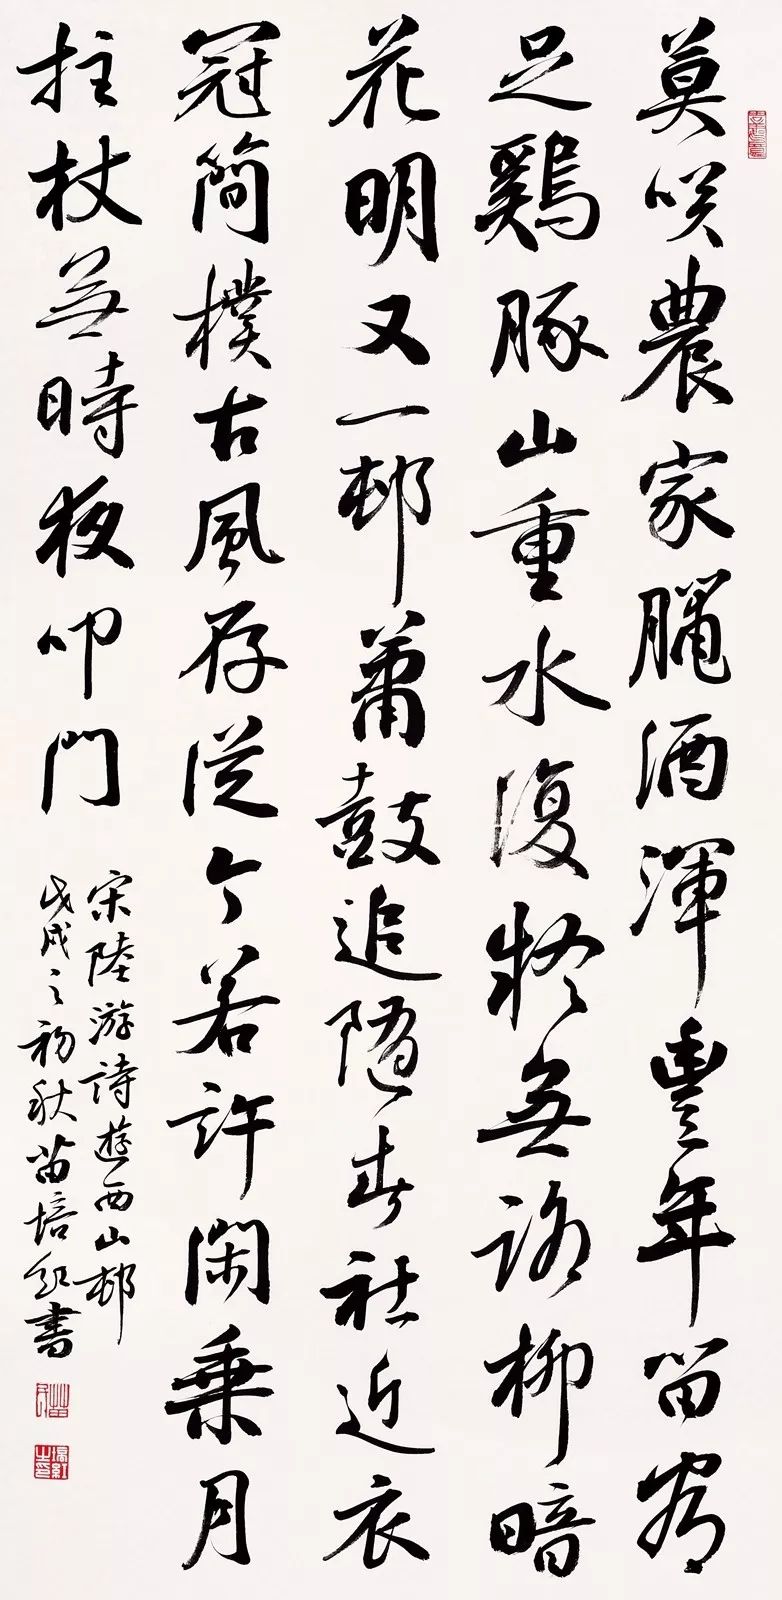 莫咲農家臘酒渾豐年留客
足鷄豚山重水復疑無路柳暗
花明又一邨蕭鼓追隨春社近衣
冠簡樸古風存從今若許閑乘月
拄杖無時夜叩門
宋陸游詩遊西山邨
戊戌之初秋苗培紅書